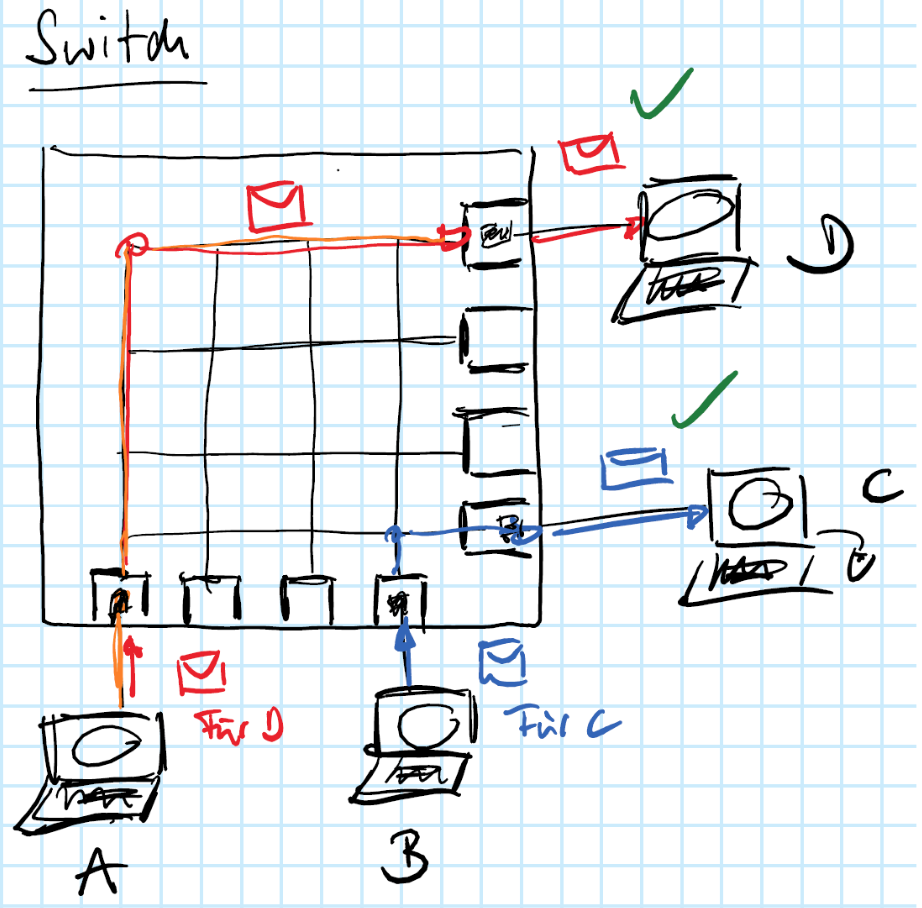 Switch
D
C
Für D
Für C
A
B